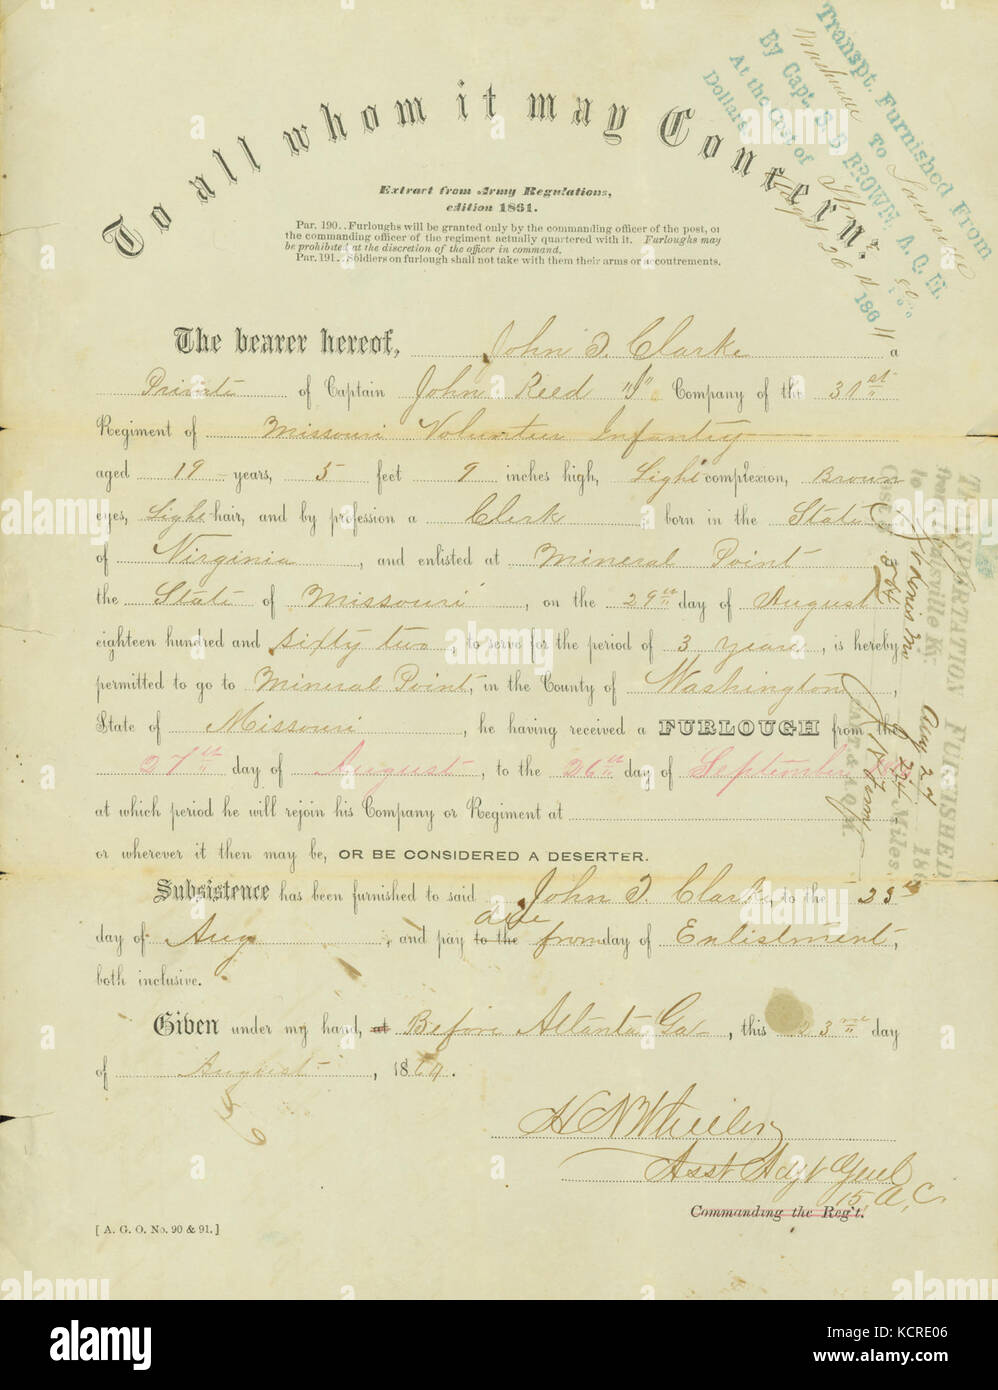 To all whom it may Concern:
Extract from Army Regulations,
edition 1861.
Par. 190..Furloughs will be granted only by the commanding officer of the post, or
the commanding officer of the regiment actually quartered with it. Furloughs may
be prohibited at the discretion of the officer in command.
Par. 191..Soldiers on furlough shall not take with them their arms or accoutrements.
Transpt. Furnished From
Nashville To Louisville
By Capt. S. B BROWN, A. Q. M.
At the Cost of
Dollars
Augt 26 1864
The bearer hereof, John T. Clarke a
Private of Captain John Reed "I" Company of the 31st
Regiment of Missouri Volunteer Infantry
aged 19 years, 5 feet 9 inches high, Light complexion, Brown
eyes, Light hair, and by profession a Clerk born in the State
of Virginia, and enlisted at Mineral Point
the State of Missouri, on the 29th day of August
eighteen hundred and sixty two, to serve for the period of 3 years, is hereby
permitted to go to Mineral Point, in the County of Washington,
State of Missouri, he having received a FURLOUGH from the
27th day of August, to the 26th day of September
at which period he will rejoin his Company or Regiment at
or wherever it then may be, OR BE CONSIDERED A DESERTER.
TRANSPORTATION FURNISHED
from Louisville Ky. Aug 27 186
to St Louis Mo
Cost $ 364 Miles.
CAPT. & A.Q.M.
Subsistence has been furnished to said John T. Clarke, to the 23rd
day of Aug, and pay to the due from day of Enlistment,
both inclusive.
Given under my hand, at Before Atlanta Ga, this 23rd day
of August, 1864.
Asst Adjt Genl
15, A, C.
Commanding the Reg't.
[A. G. O. No. 90 & 91.]
alamy
alamy
Image ID: KCRE06
www.alamy.com